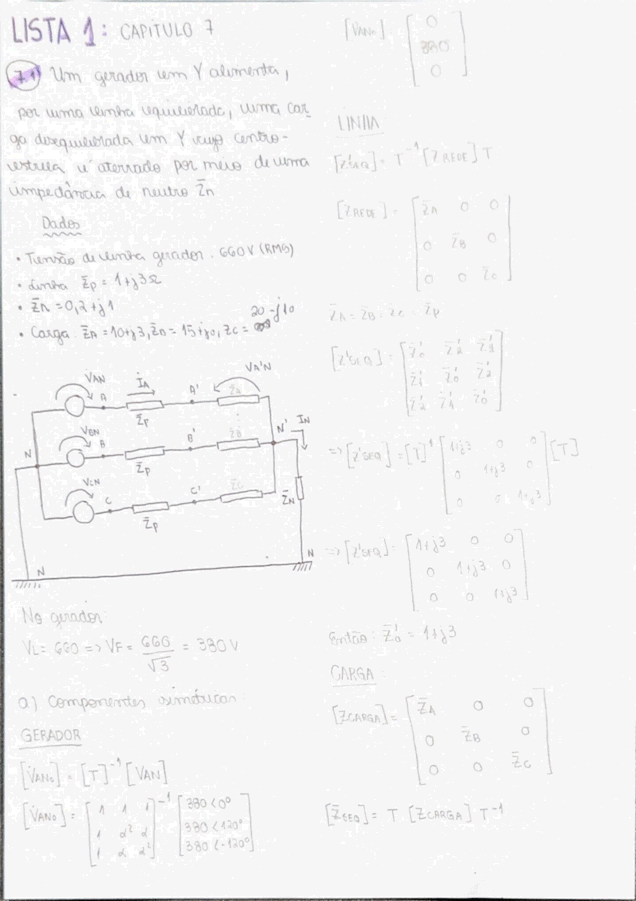 LISTA 1: CAPITULO 7
7.1 Um gerador em Y alimenta,
por uma linha equilibrada, uma car-
ga desequilibrada em Y cujo centro-
estrela é aterrado por meio de uma
impedância de neutro Z̄n
Dados
• Tensão de linha gerador: 660 V (RMS)
• Linha Z̄p = 1+j3Ω
• Z̄n = 0,2+j1
20-j10
• Carga Z̄A = 10+j3, Z̄B = 15+j0, Z̄C =
V̇AN İA VA'N
A A'
Z̄p
V̇BN
N B B' N' İN
Z̄p
V̇CN
C C' Z̄N
Z̄p
N N
No gerador
VL = 660 => VF = 660/√3 = 380 V
a) Componentes simétricas
GERADOR
[V̇AN₀] = [T]⁻¹ [VAN]
[V̇AN₀] = [1 1 1]⁻¹ [380∠0°]
1 α² α 380∠120°
1 α α² 380∠-120°
[V̇AN₀] [0]
380
0
LINHA
[Z'SEQ] = T⁻¹ [ZREDE] T
[ZREDE] = [Z̄A 0 0]
0 Z̄B 0
0 0 Z̄C
Z̄A = Z̄B = Z̄C = Z̄p
[Z'SEQ] = [Z̄'0 Z̄'2 Z̄'1]
Z̄'1 Z̄'0 Z̄'2
Z̄'2 Z̄'1 Z̄'0
=> [Z'SEQ] = [T]⁻¹ [1+j3 0 0] [T]
0 1+j3 0
0 0 1+j3
=> [Z'SEQ] = [1+j3 0 0]
0 1+j3 0
0 0 1+j3
Então: Z̄'0 = 1+j3
CARGA
[ZCARGA] = [Z̄A 0 0]
0 Z̄B 0
0 0 Z̄C
[Z̄SEQ] = T [ZCARGA] T⁻¹